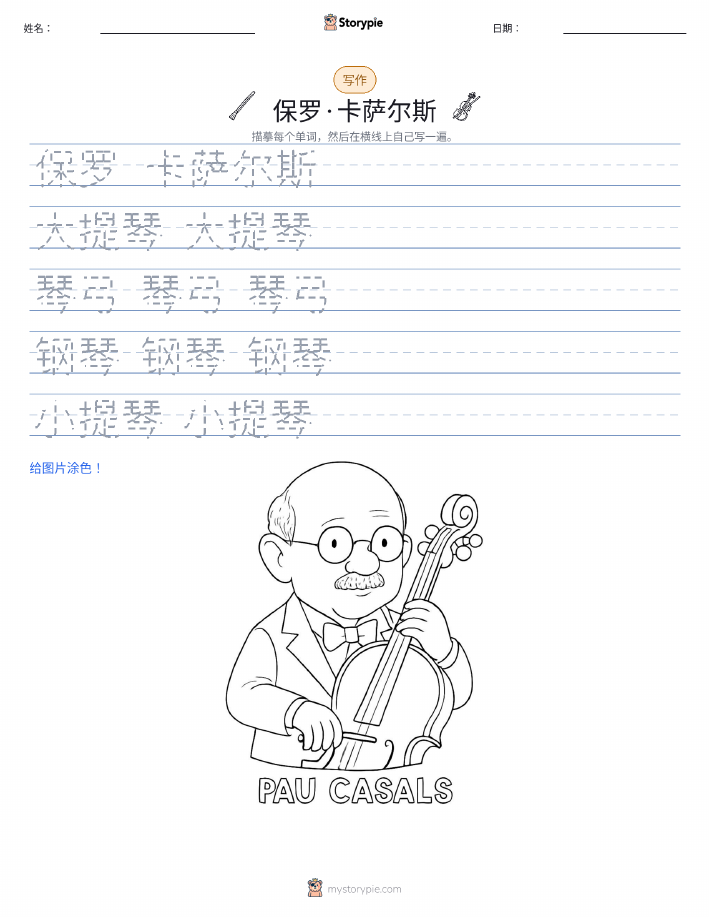 姓名：
Storypie
日期：
写作
保罗·卡萨尔斯
描摹每个单词，然后在横线上自己写一遍。
保罗 卡萨尔斯
大提琴 大提琴
琴弓 琴弓 琴弓
钢琴 钢琴 钢琴
小提琴 小提琴
给图片涂色！
PAU CASALS
mystorypie.com